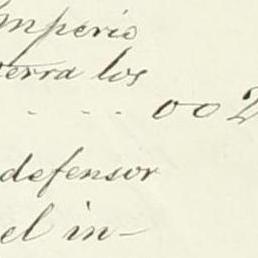 imperio
erra los
- - - 002
defensor
el in-